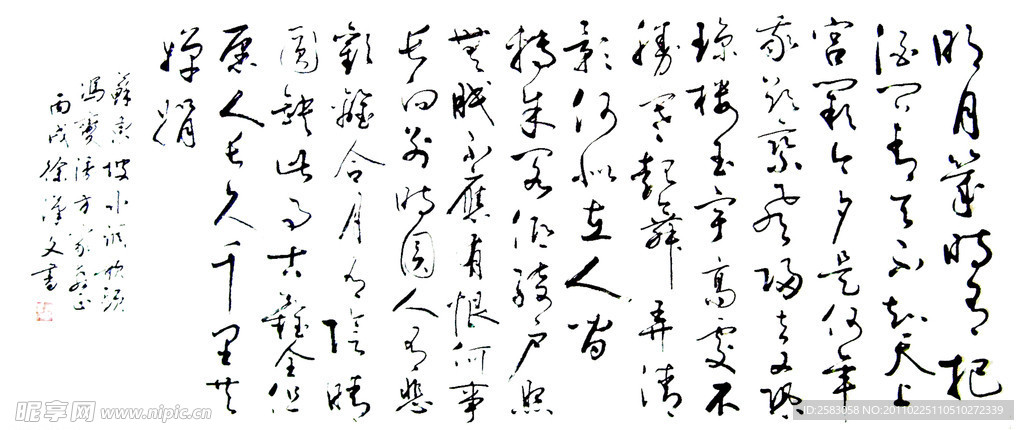 明月幾時有把
酒問青天不知天上
宮闕今夕是何年
我欲乘風歸去又恐
瓊樓玉宇高處不
勝寒起舞弄清
影何似在人間
轉朱閣低綺户照
無眠不應有恨何事
長向别時圓人有悲
歡離合月有陰晴
圓缺此事古難全但
願人長久千里共
嬋娟
蘇東坡水調歌頭
馮寶 方家 正
丙戌徐漢文書
昵享网 www.nipic.cn
ID:2583058 NO:20110225110510272339